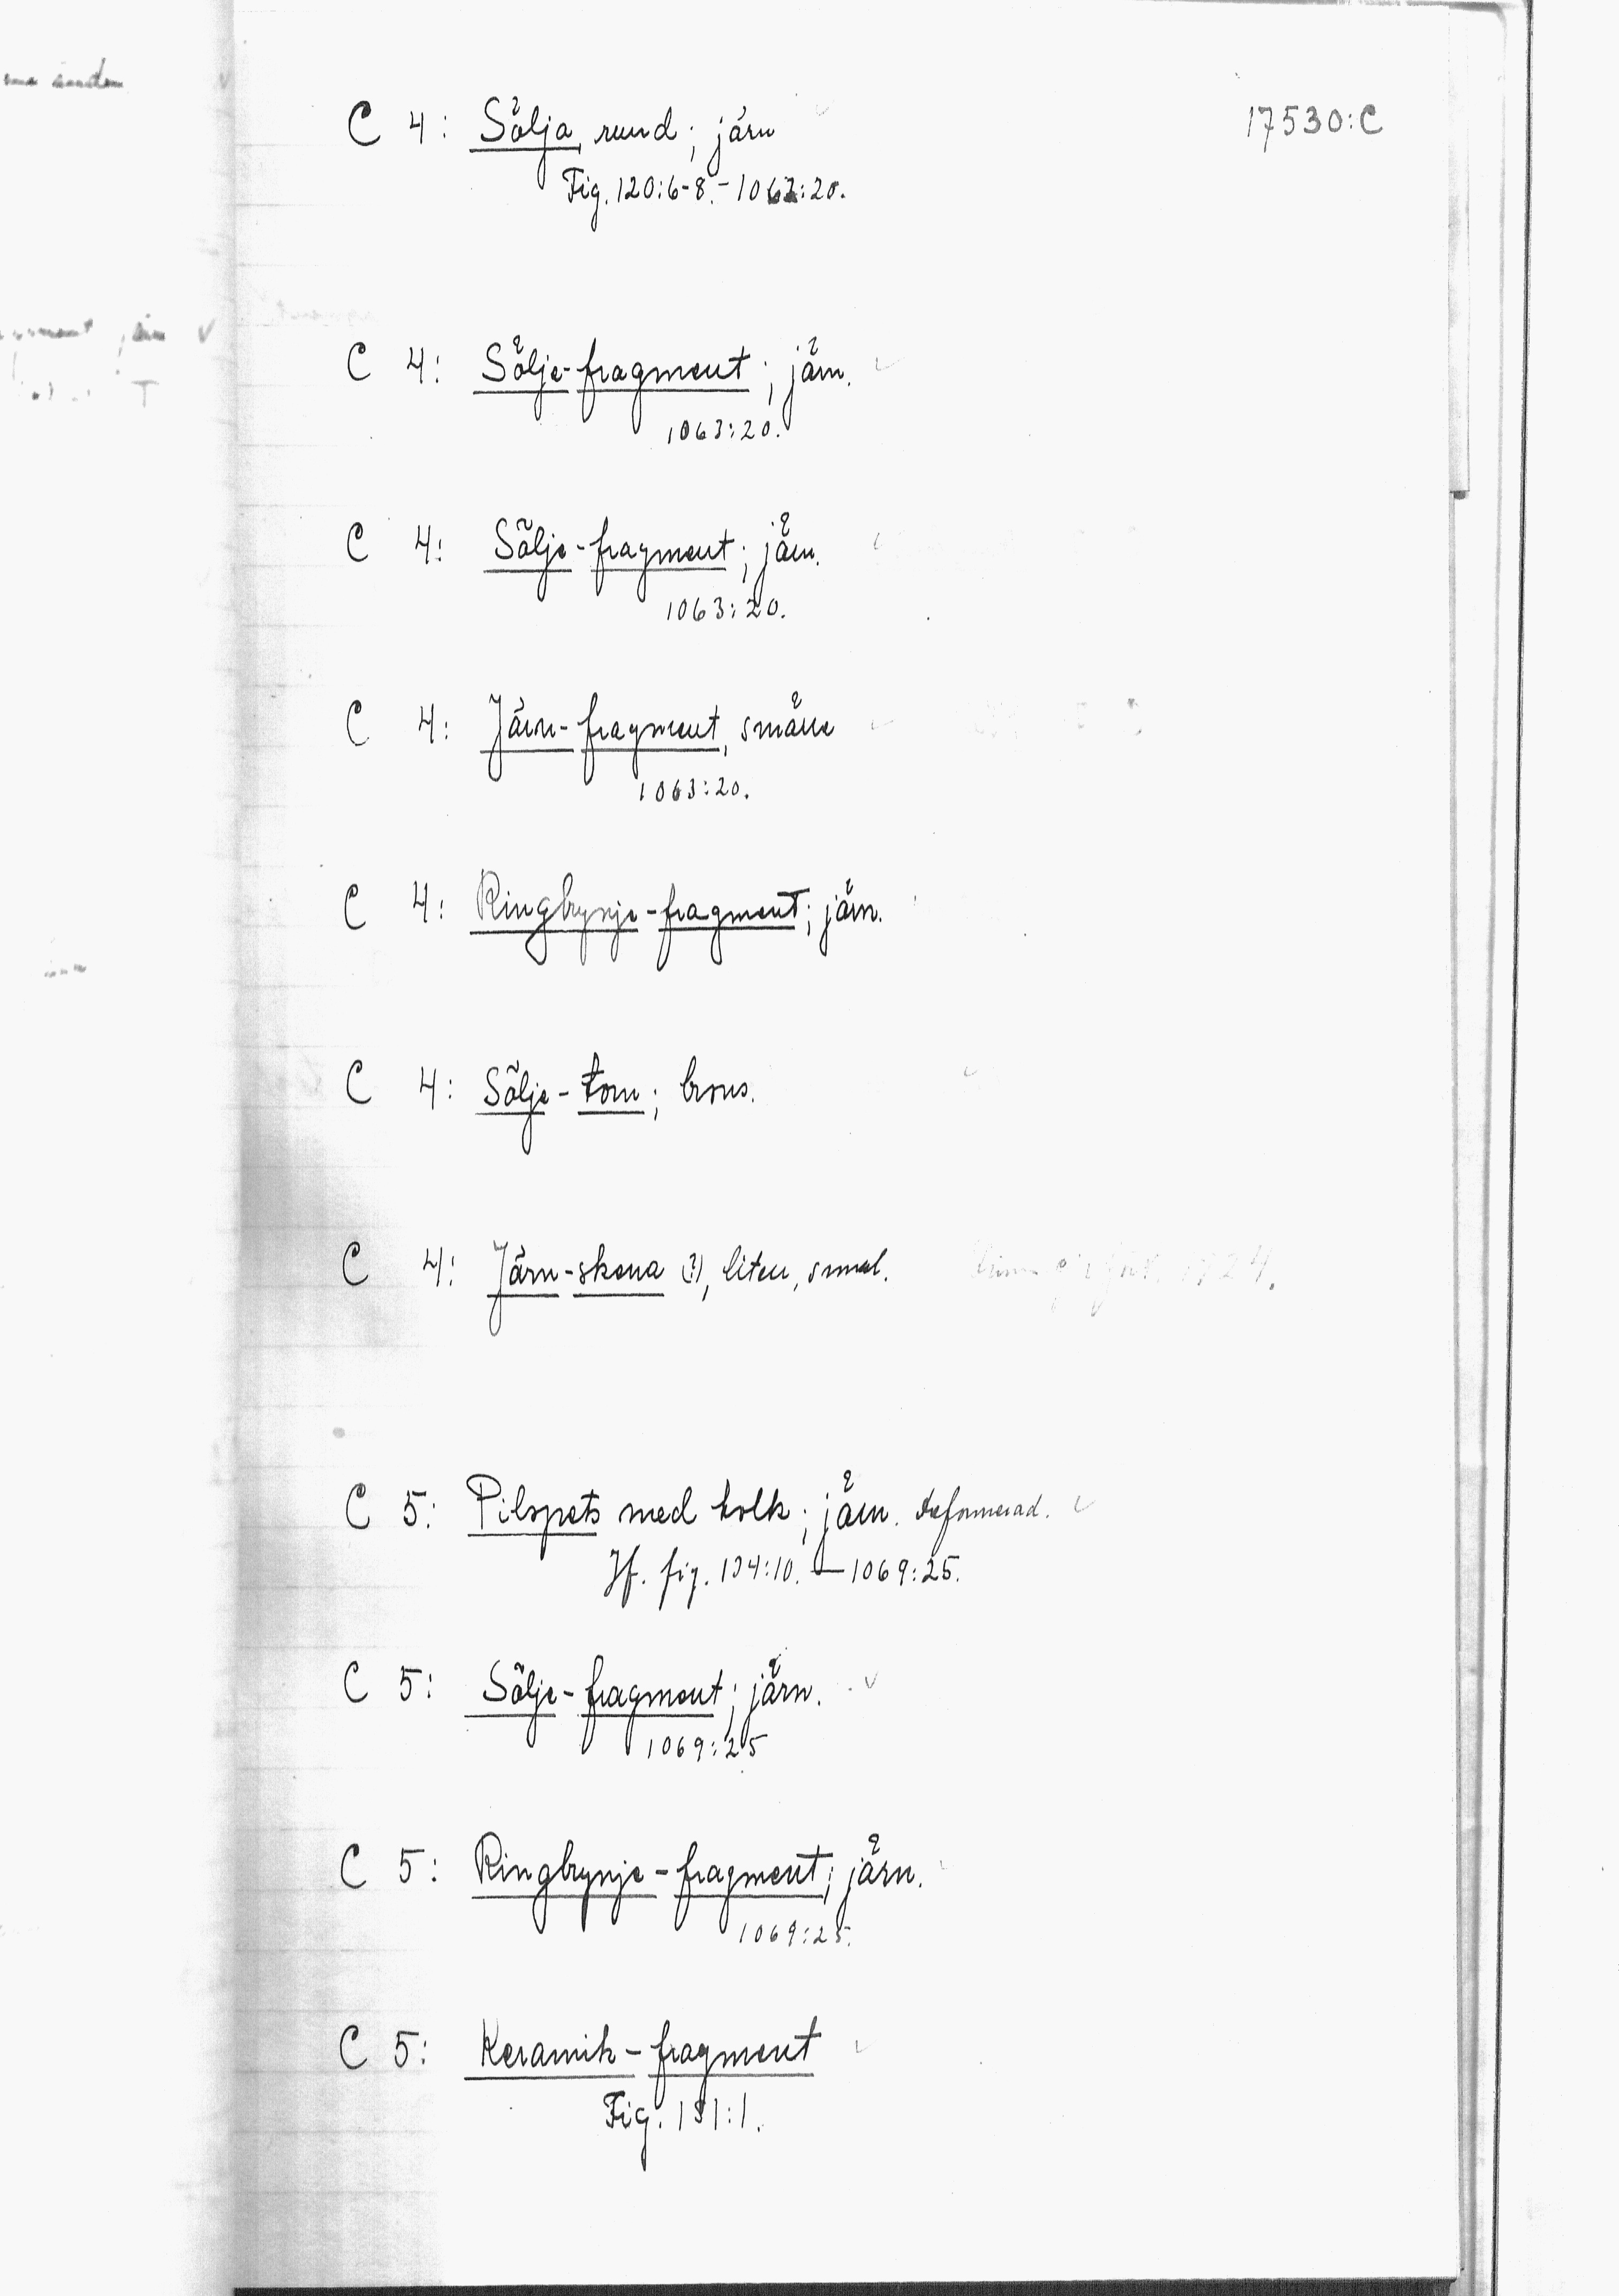 17530:C
C 4: Sölja, rund; järn
Fig. 120:6-8. - 1063:20.
C 4: Sölje-fragment; järn.
1063:20.
C 4: Sölje-fragment; järn.
1063:20.
C 4: Järn-fragment, smärre
1063:20.
C 4: Ringbrynje-fragment; järn.
C 4: Sölje-torn; brons.
C 4: Järn-skena (?), liten, smal.
1924.
C 5: Pilspets med holk; järn. deformerad.
Jf. fig. 134:10. — 1069:25.
C 5: Sölje-fragment; järn.
1069:25
C 5: Ringbrynje-fragment; järn.
1069:25.
C 5: Keramik-fragment
Fig. 131:1.